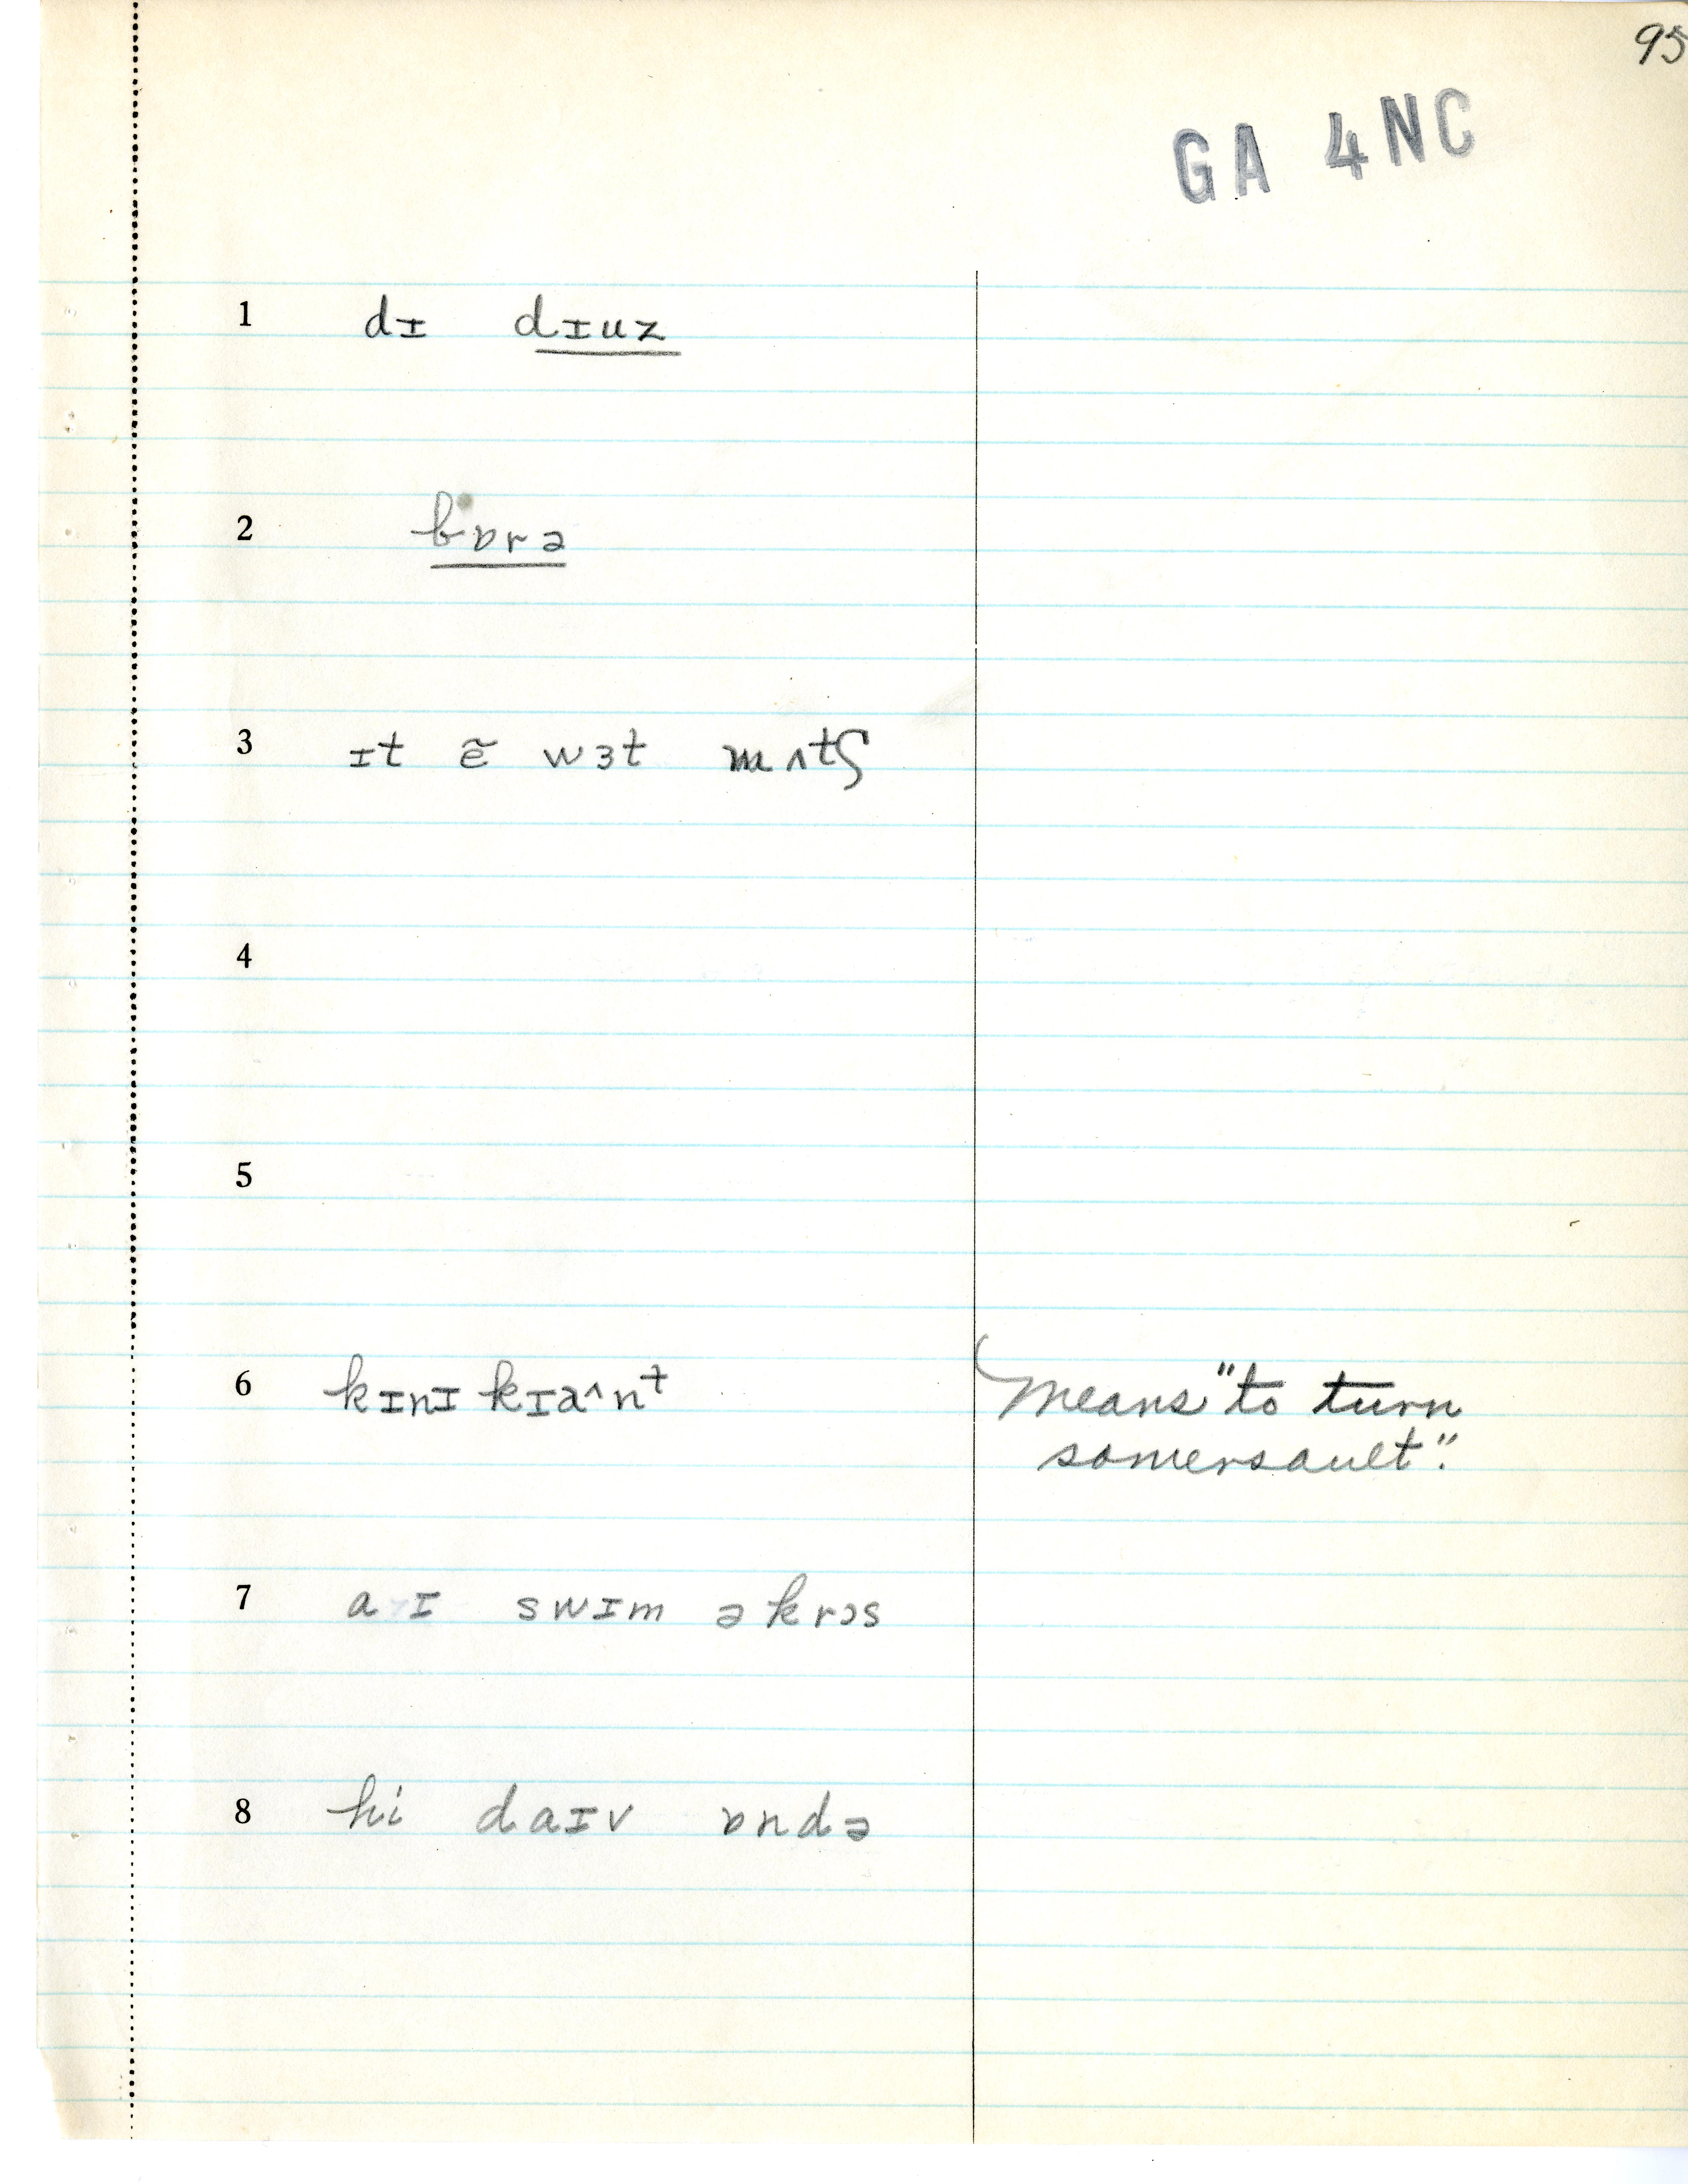 95
GA 4NC
1 dɪ dɪuz
2 bɒrə
3 ɪt ẽ wɜt mʌtʃ
4
5
6 kɪnɪ kɪa^nt means "to turn
somersault".
7 a ɪ swɪm əkrɔs
8 hi daɪv ɒndə